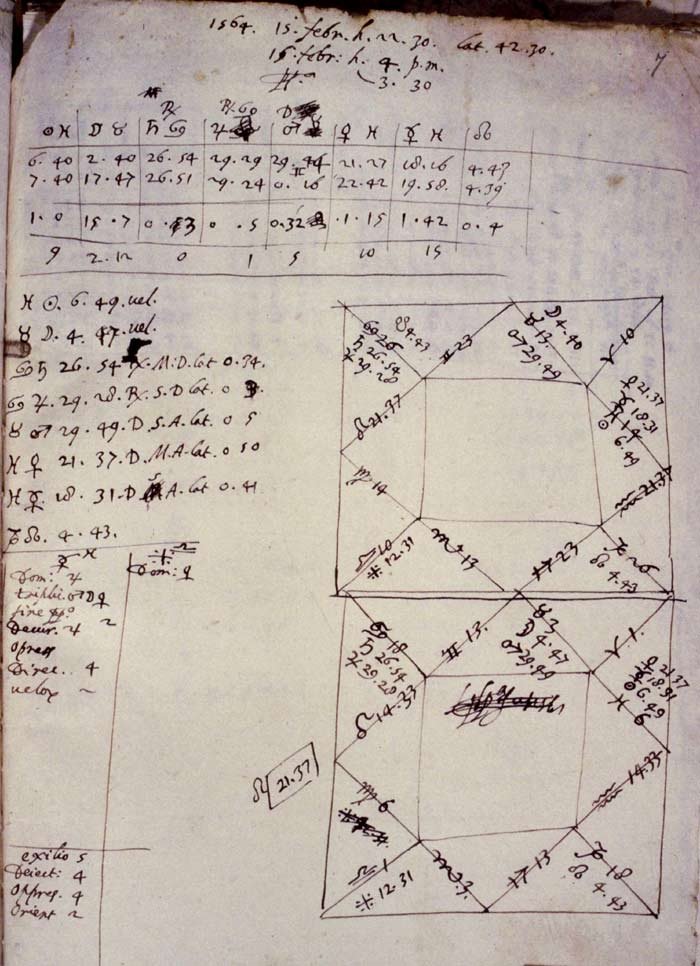 1564. 15. febr. h. 22. 30. lat. 42.30.
15. febr: h. 4. p.m.
3. 30
7
℞ ℞ ♋ D
☉ ♓ | ☽ ♉ | ♄ ♋ | ♃ | ♂ | ♀ ♓ | ☿ ♓ | ☊
6. 40 | 2. 40 | 26. 54 | 29. 29 | 29. 44 | 21. 27 | 18. 16 | 4. 43
7. 40 | 17. 47 | 26. 51 | 29. 24 | ♊ 0. 16 | 22. 42 | 19. 58. | 4. 39
1. 0 | 15. 7 | 0. 3 | 0. 5 | 0.32 | 1. 15 | 1. 42 | 0. 4
9 | 2. 12 | 0 | 1 | 5 | 10 | 15
♓ ☉. 6. 49. vel.
♉ ☽. 4. 47. vel.
♋ ♄ 26. 54 ℞. M. D. lat 0. 34.
♋ ♃. 29. 28. ℞. S. D. lat. 0
♉ ♂ 29. 49. D. S. A. lat. 0 5
♓ ♀ 21. 37. D. M. A. lat. 0 50
♓ ☿. 18. 31. D A. lat 0. 41
♑ ☊. 4. 43.
☿ ♓
Dom: ♃
Dom: ♀
tripli: ♂ ☽ ♀
sine
Decur. 4
opress
Direc.. 4
velox 2
exilio 5
Deiect: 4
oppres. 4
Orient 2
♋ 26
♄ 26.54
♃ 29.28
☋ 4.43
♊ 23
☽ 4.40
♉ 13.
♂ 29.49
♈ 10
♀ 21.37
☿ 18.31
♓ 14
☉ 6.49
♌ 21.37
♒ 21.37
♍ 14
♎ 10
12.31
♏ 13
♐ 23
♑ 26
☊ 4.43
♋ 18
♄ 26.54
♃ 29.28
♊ 13.
♉ 3
☽ 4.47
♂ 29.49
♈ 1.
♀ 21.37
☿ 18.31
☉ 6.49
♓ 6
♌ 14.33
♌ 21.37
♒ 14.33
♍ 6
♎ 1
12.31
♏ 3.
♐ 13
♑ 18
☊ 4.43